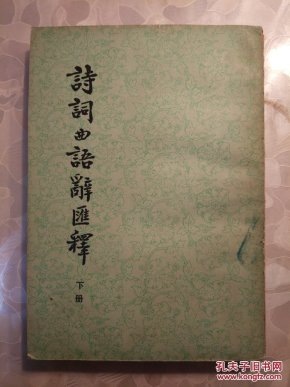 詩詞曲語辭匯釋
下册
孔夫子旧书网